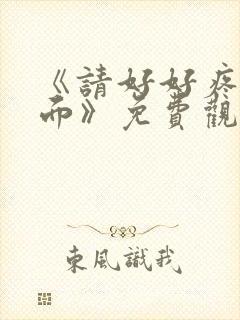 《請好好疼
而》免費觀
東風識我